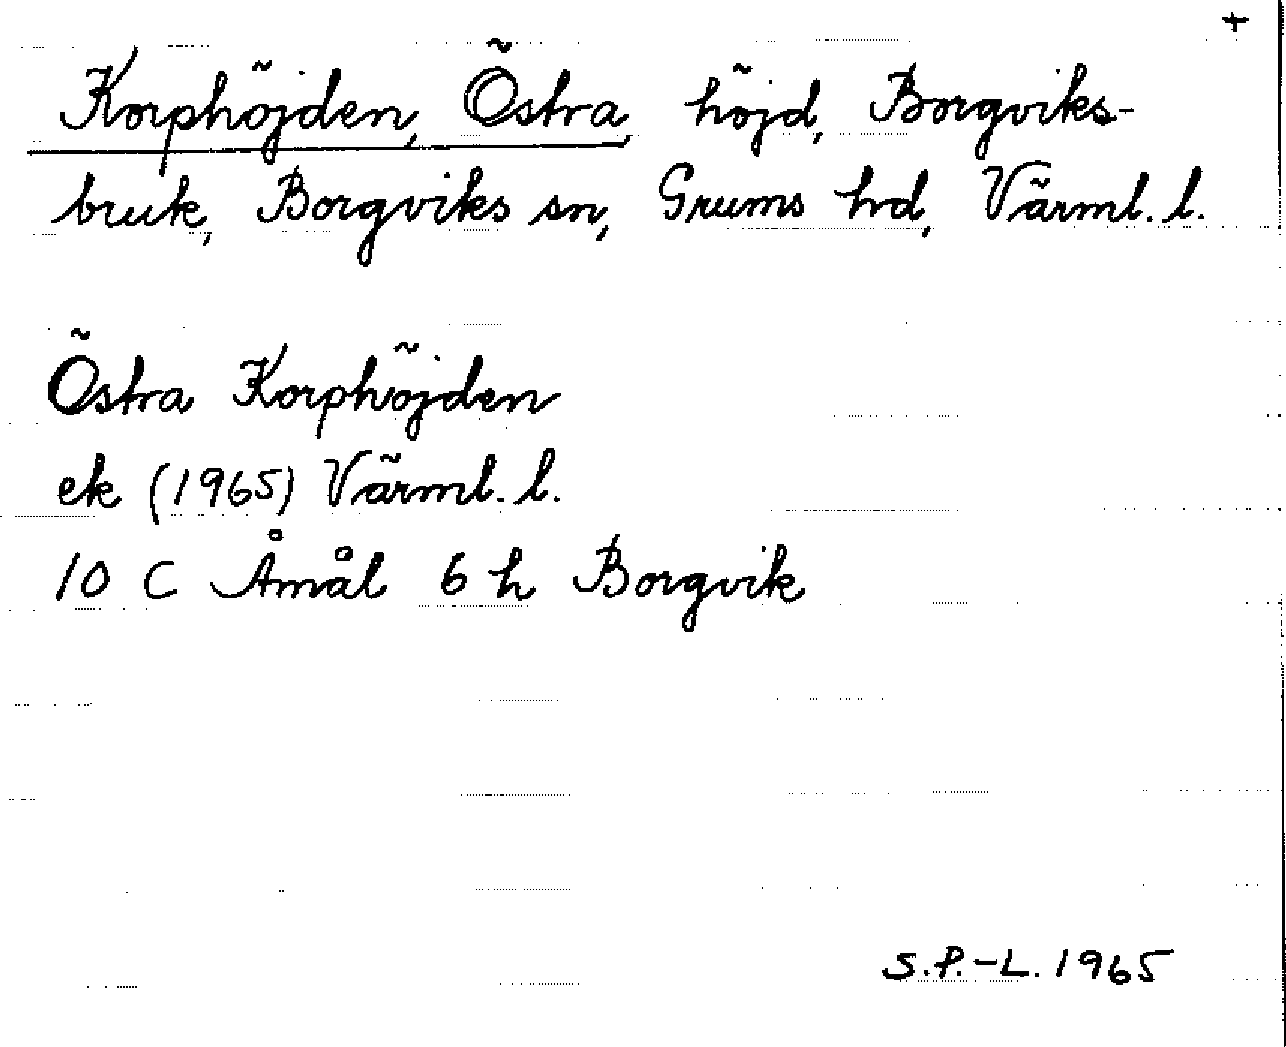 +
Korphöjden, Östra, höjd, Borgviks-
bruk, Borgviks sn, Grums hrd, Värml. l.
Östra Korphöjden
ek (1965) Värml. l.
10 C Åmål 6 h Borgvik
S.P.-L. 1965